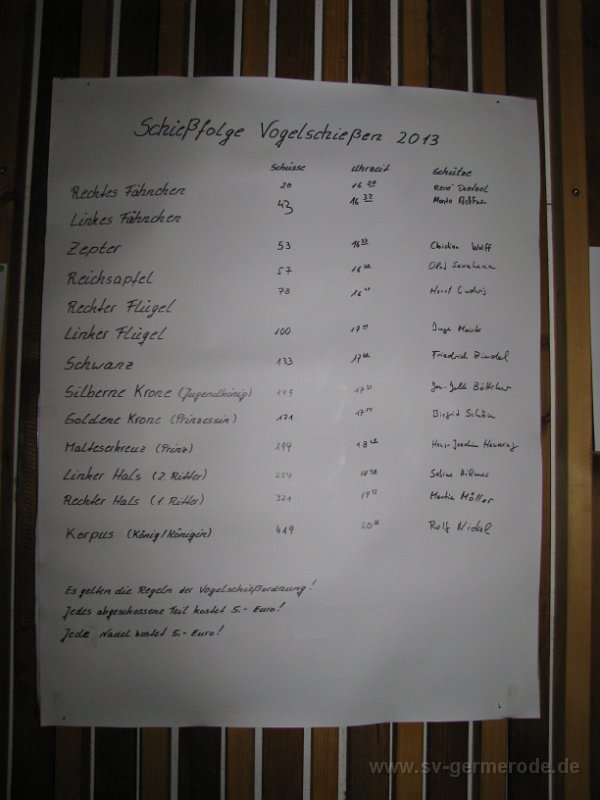 Schießfolge Vogelschießen 2013
Schüsse Uhrzeit Schütze
Rechtes Fähnchen 20 16 20 René
Linkes Fähnchen 43 16 32
Zepter 53 16 Christian Wolff
Reichsapfel 57 16 Olaf
Rechter Flügel 78 16 Horst Ludwig
Linker Flügel 100 17
Schwanz 133 17 Friedrich Zindel
Silberne Krone (Jugendkönig) 149 17
Goldene Krone (Prinzessin) 171 17 Birgit Schön
Malteserkreuz (Prinz) 18 Hans-Joachim
Linker Hals (2. Ritter) 18 Sabine
Rechter Hals (1. Ritter) 321 19 Martin Möller
Korpus (König/Königin) 419 20 Rolf Nickel
Es gelten die Regeln der Vogelschießordnung!
Jedes abgeschossene Teil kostet 5.- Euro!
Jede Nadel kostet 5.- Euro!
www.sv-germerode.de